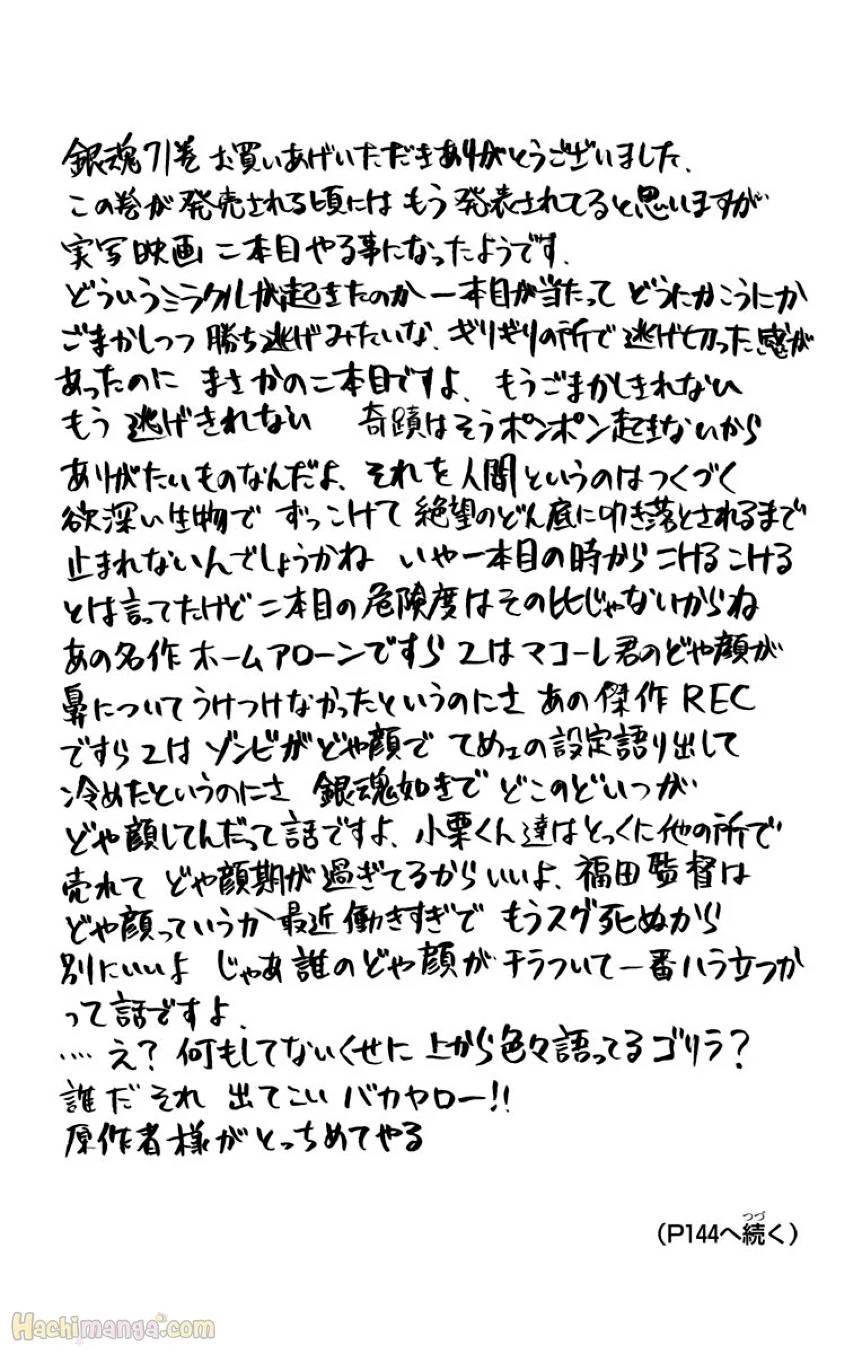 銀魂71巻 お買いあげいただきありがとうございました.
この巻が発売される頃には もう発表されてると思いますが
実写映画 二本目やる事になったようです.
どういうミラクルが起きたのか 一本目が当たって どうにかこうにか
ごまかしつつ 勝ち逃げみたいな、ぎりぎりの所で逃げ切った感が
あったのに まさかの二本目ですよ、もうごまかしきれない
もう逃げきれない 奇蹟はそうポンポン起きないから
ありがたいものなんだよ、それを人間というのはつくづく
欲深い生物で ずっこけて絶望のどん底に叩き落とされるまで
止まれないんでしょうかね いや一本目の時から こけるこける
とは言ってたけど 二本目の危険度はその比じゃないからね
あの名作ホームアローンですら 2はマコーレ君のどや顔が
鼻についてうけつけなかったというのにさ あの傑作REC
ですら2は ゾンビがどや顔で てめェの設定語り出して
冷めたというのにさ 銀魂如きで どこのどいつが
どや顔してんだって話ですよ、小栗くん達はとっくに他の所で
売れて どや顔期が過ぎてるからいいよ、福田監督は
どや顔っていうか最近働きすぎで もうスグ死ぬから
別にいいよ じゃあ誰のどや顔が チラついて一番ハラ立つか
って話ですよ.
‥‥え？何もしてないくせに 上から色々語ってるゴリラ？
誰だ それ 出てこい バカヤロー!!
原作者様がとっちめてやる
（P144へ続く）
つづ
Hachimanga.com